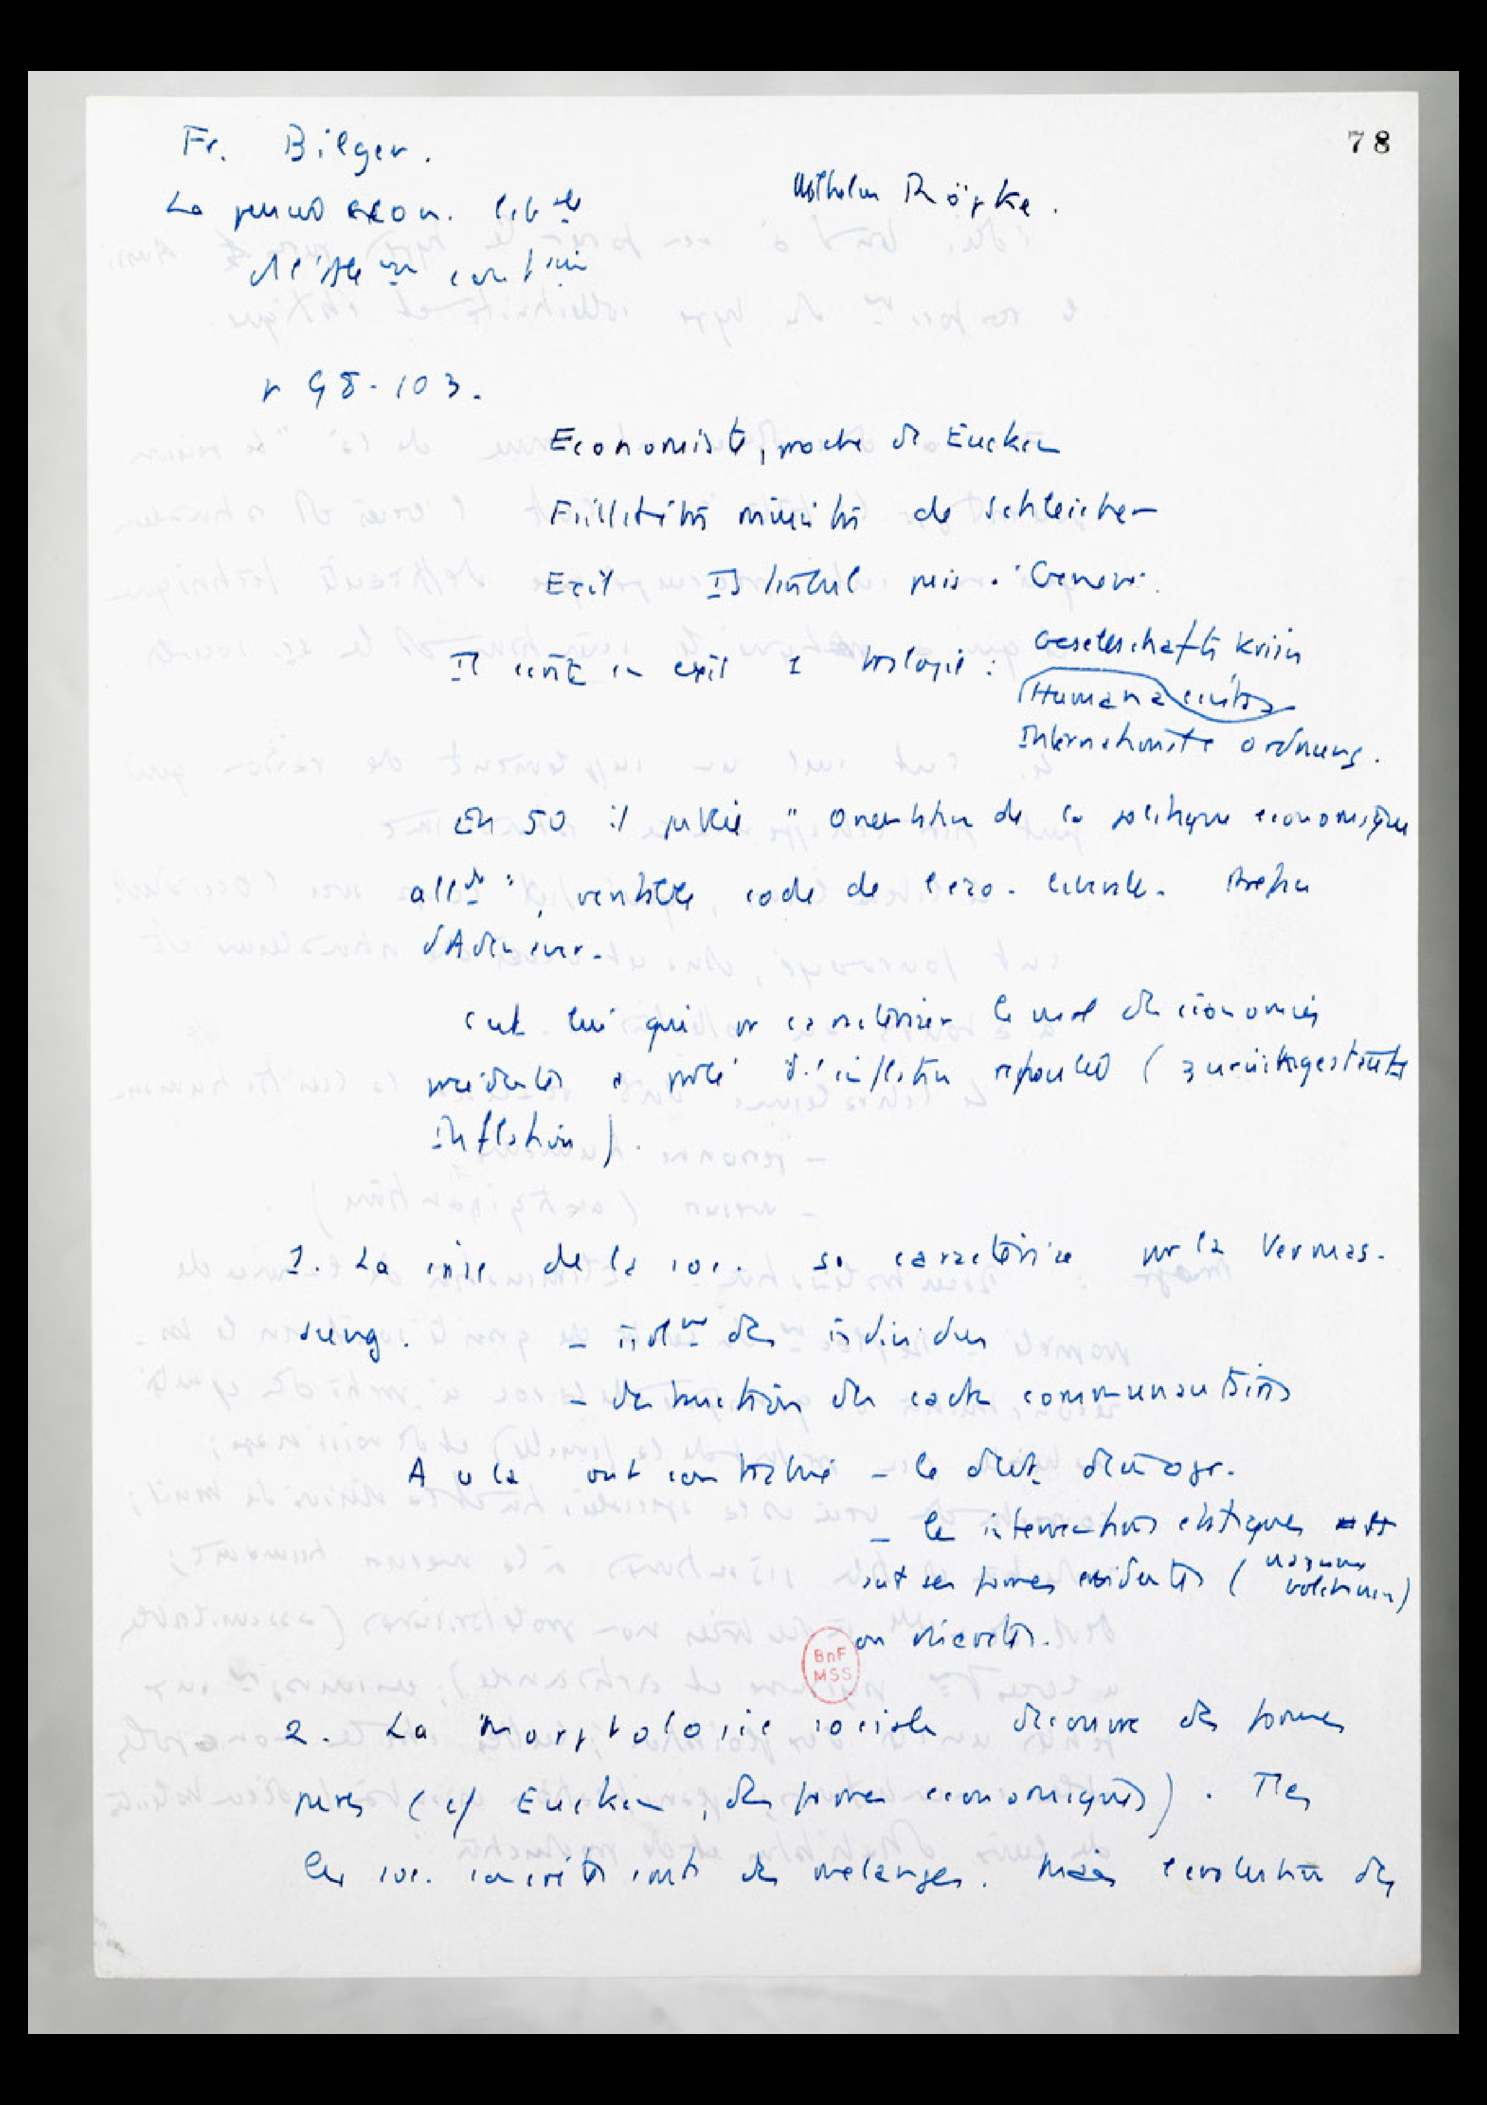 78
Fr. Bilger.
La pensée écon. lib^ale
All^de contemp^ine
Wilhelm Röpke.
p 98-103.
Economiste, proche de Eucken
ministre de Schleicher
Exil Istanbul puis Genève.
Il écrit en exil 1 trilogie : Gesellschaftskrisis
Humana civitas
Internationale Ordnung.
En 50 il publie "Orientation de la politique économique
all^de", véritable code de l'éco. libérale. Préface
d'Adenauer.
C'est lui qui a caractérisé le mal des économies
occidentales à d'inflation refoulée (zurückgestaute
Inflation).
1. La crise de la soc. se caractérise par la Vermas-
sung. - isol^mt des individus
- destruction des cadres communautaires
A cela ont contribué - le démogr.
- les interventions étatiques
sous ses formes évidentes (
ou discrètes.
BnF
MSS
2. La morphologie sociale découvre des formes
pures (cf Eucken, des formes économiques). Ttes
les soc. concrètes sont des mélanges. Mais l'évolution des